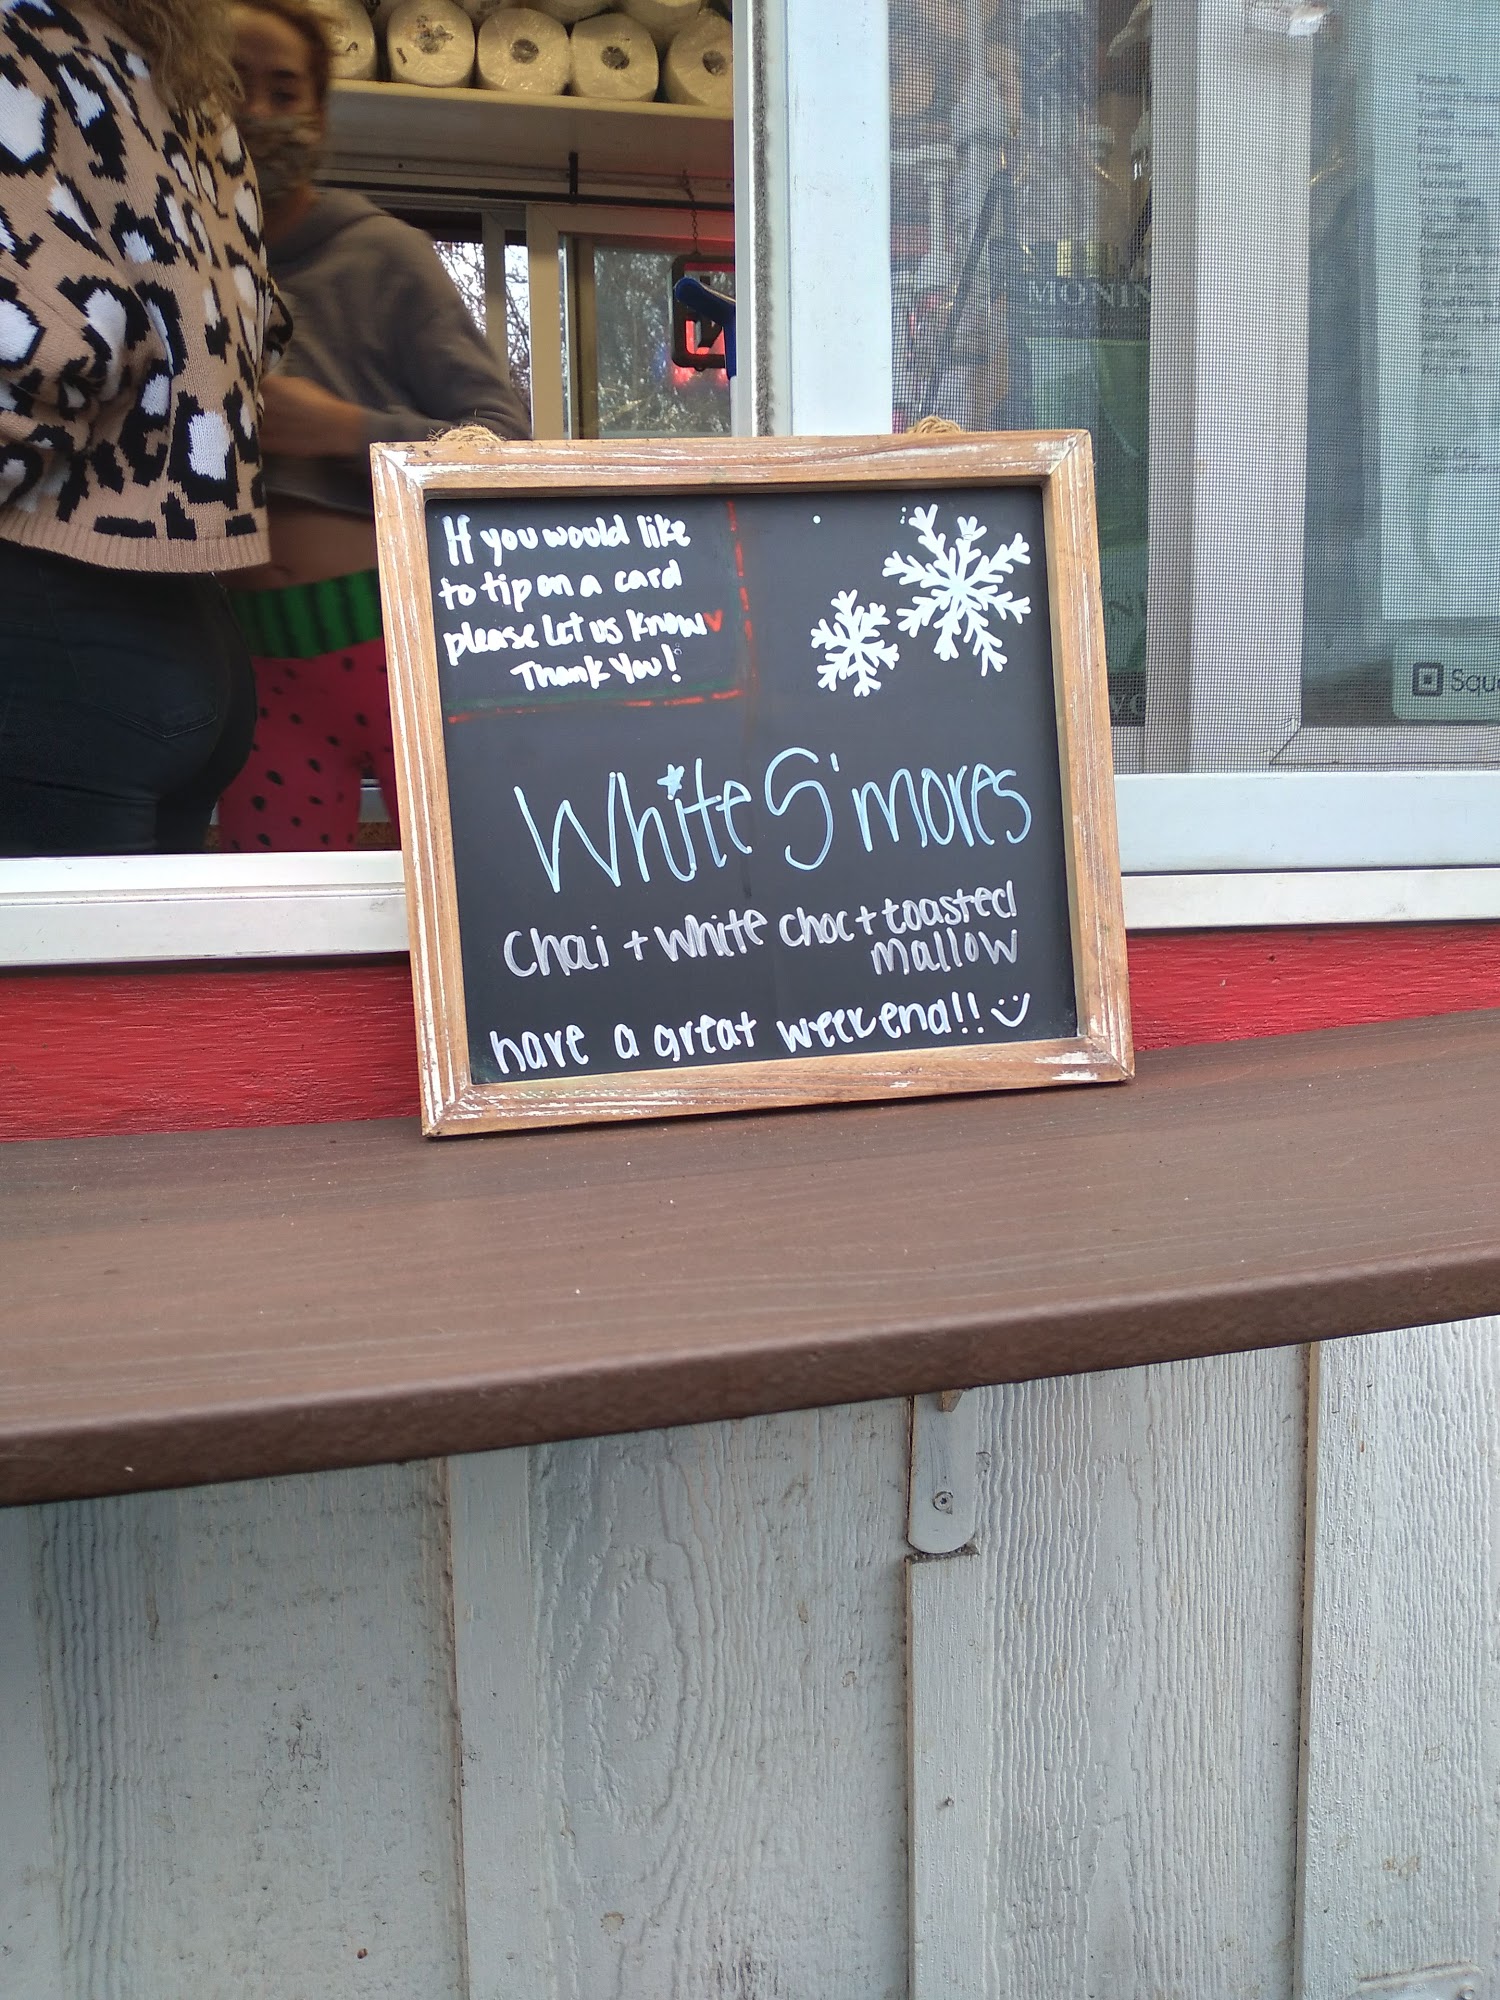 If you would like
to tip on a card
please let us know
Thank You!
White S'mores
Chai + white choc + toasted
mallow
have a great weekend!!
MONIN
Squ